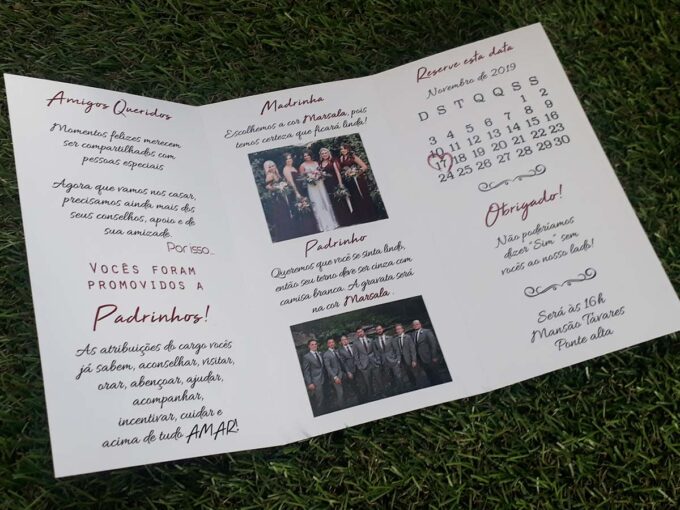 Amigos Queridos
Momentos felizes merecem
ser compartilhados com
pessoas especiais
Agora que vamos nos casar,
precisamos ainda mais dos
seus conselhos, apoio e de
sua amizade.
Por isso...
VOCÊS FORAM
PROMOVIDOS A
Padrinhos!
As atribuições do cargo vocês
já sabem, aconselhar, visitar,
orar, abençoar, ajudar,
acompanhar,
incentivar, cuidar e
acima de tudo AMAR!
Madrinha
Escolhemos a cor Marsala, pois
temos certeza que ficará linda!
Padrinho
Queremos que você se sinta lindo,
então seu terno deve ser cinza com
camisa branca. A gravata será
na cor Marsala.
Reserve esta data
Novembro de 2019
D S T Q Q S S
1 2
3 4 5 6 7 8 9
10 11 12 13 14 15 16
17 18 19 20 21 22 23
24 25 26 27 28 29 30
Obrigado!
Não poderíamos
dizer "Sim" sem
vocês ao nosso lado!
Será às 16h
Mansão Távares
Ponte alta